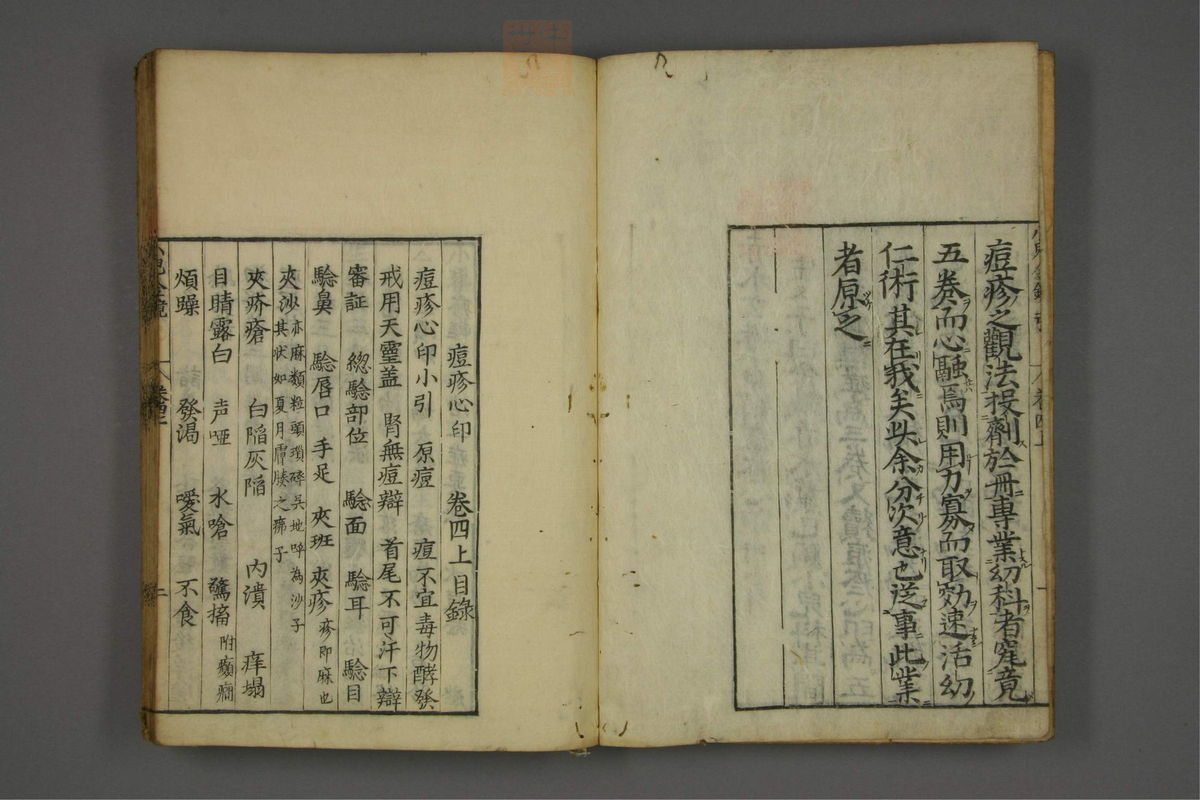 痘疹之觀法投劑於冊專業幼科者究竟
五卷而心融焉則用力寡而取効速活幼
仁術其在我矣此余分次意也從事此業
者原之
痘疹心印 卷四上目錄
痘疹心印小引 原痘 痘不宜毒物醉發
戒用天靈盖 腎無痘辯 首尾不可汗下辯
審証 緫驗部位 驗面 驗耳 驗目
驗鼻 驗唇口 手足 夾班 夾疹 疹即麻也
夾沙 亦麻類粒頭瑣碎吳地呼為沙子
其状如夏月膚腠之疿子
夾疥瘡 白陷灰陷 內潰 痒塌
目睛露白 声啞 水嗆 驚搐 附癲癇
煩躁 發渴 噯氣 不食